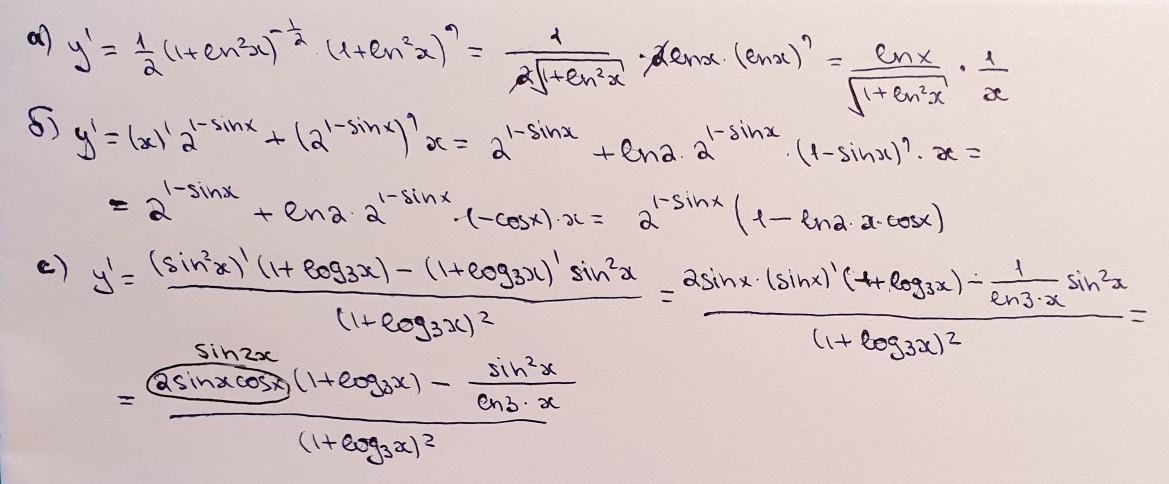 а) y' = 1/2 (1+ln²x)^(-1/2) · (1+ln²x)' = 1/(2√(1+ln²x)) · 2lnx · (lnx)' = lnx/√(1+ln²x) · 1/x
б) y' = (x)' 2^(1-sinx) + (2^(1-sinx))' x = 2^(1-sinx) + ln2 · 2^(1-sinx) · (1-sinx)' · x =
= 2^(1-sinx) + ln2 · 2^(1-sinx) · (-cosx) · x = 2^(1-sinx) (1 - ln2 · x · cosx)
с) y' = ((sin²x)' (1+log₃x) - (1+log₃x)' sin²x)/(1+log₃x)² = (2sinx · (sinx)' (1+log₃x) - 1/(ln3·x) sin²x)/(1+log₃x)² =
sin2x
= (2sinxcosx (1+log₃x) - sin²x/(ln3·x))/(1+log₃x)²